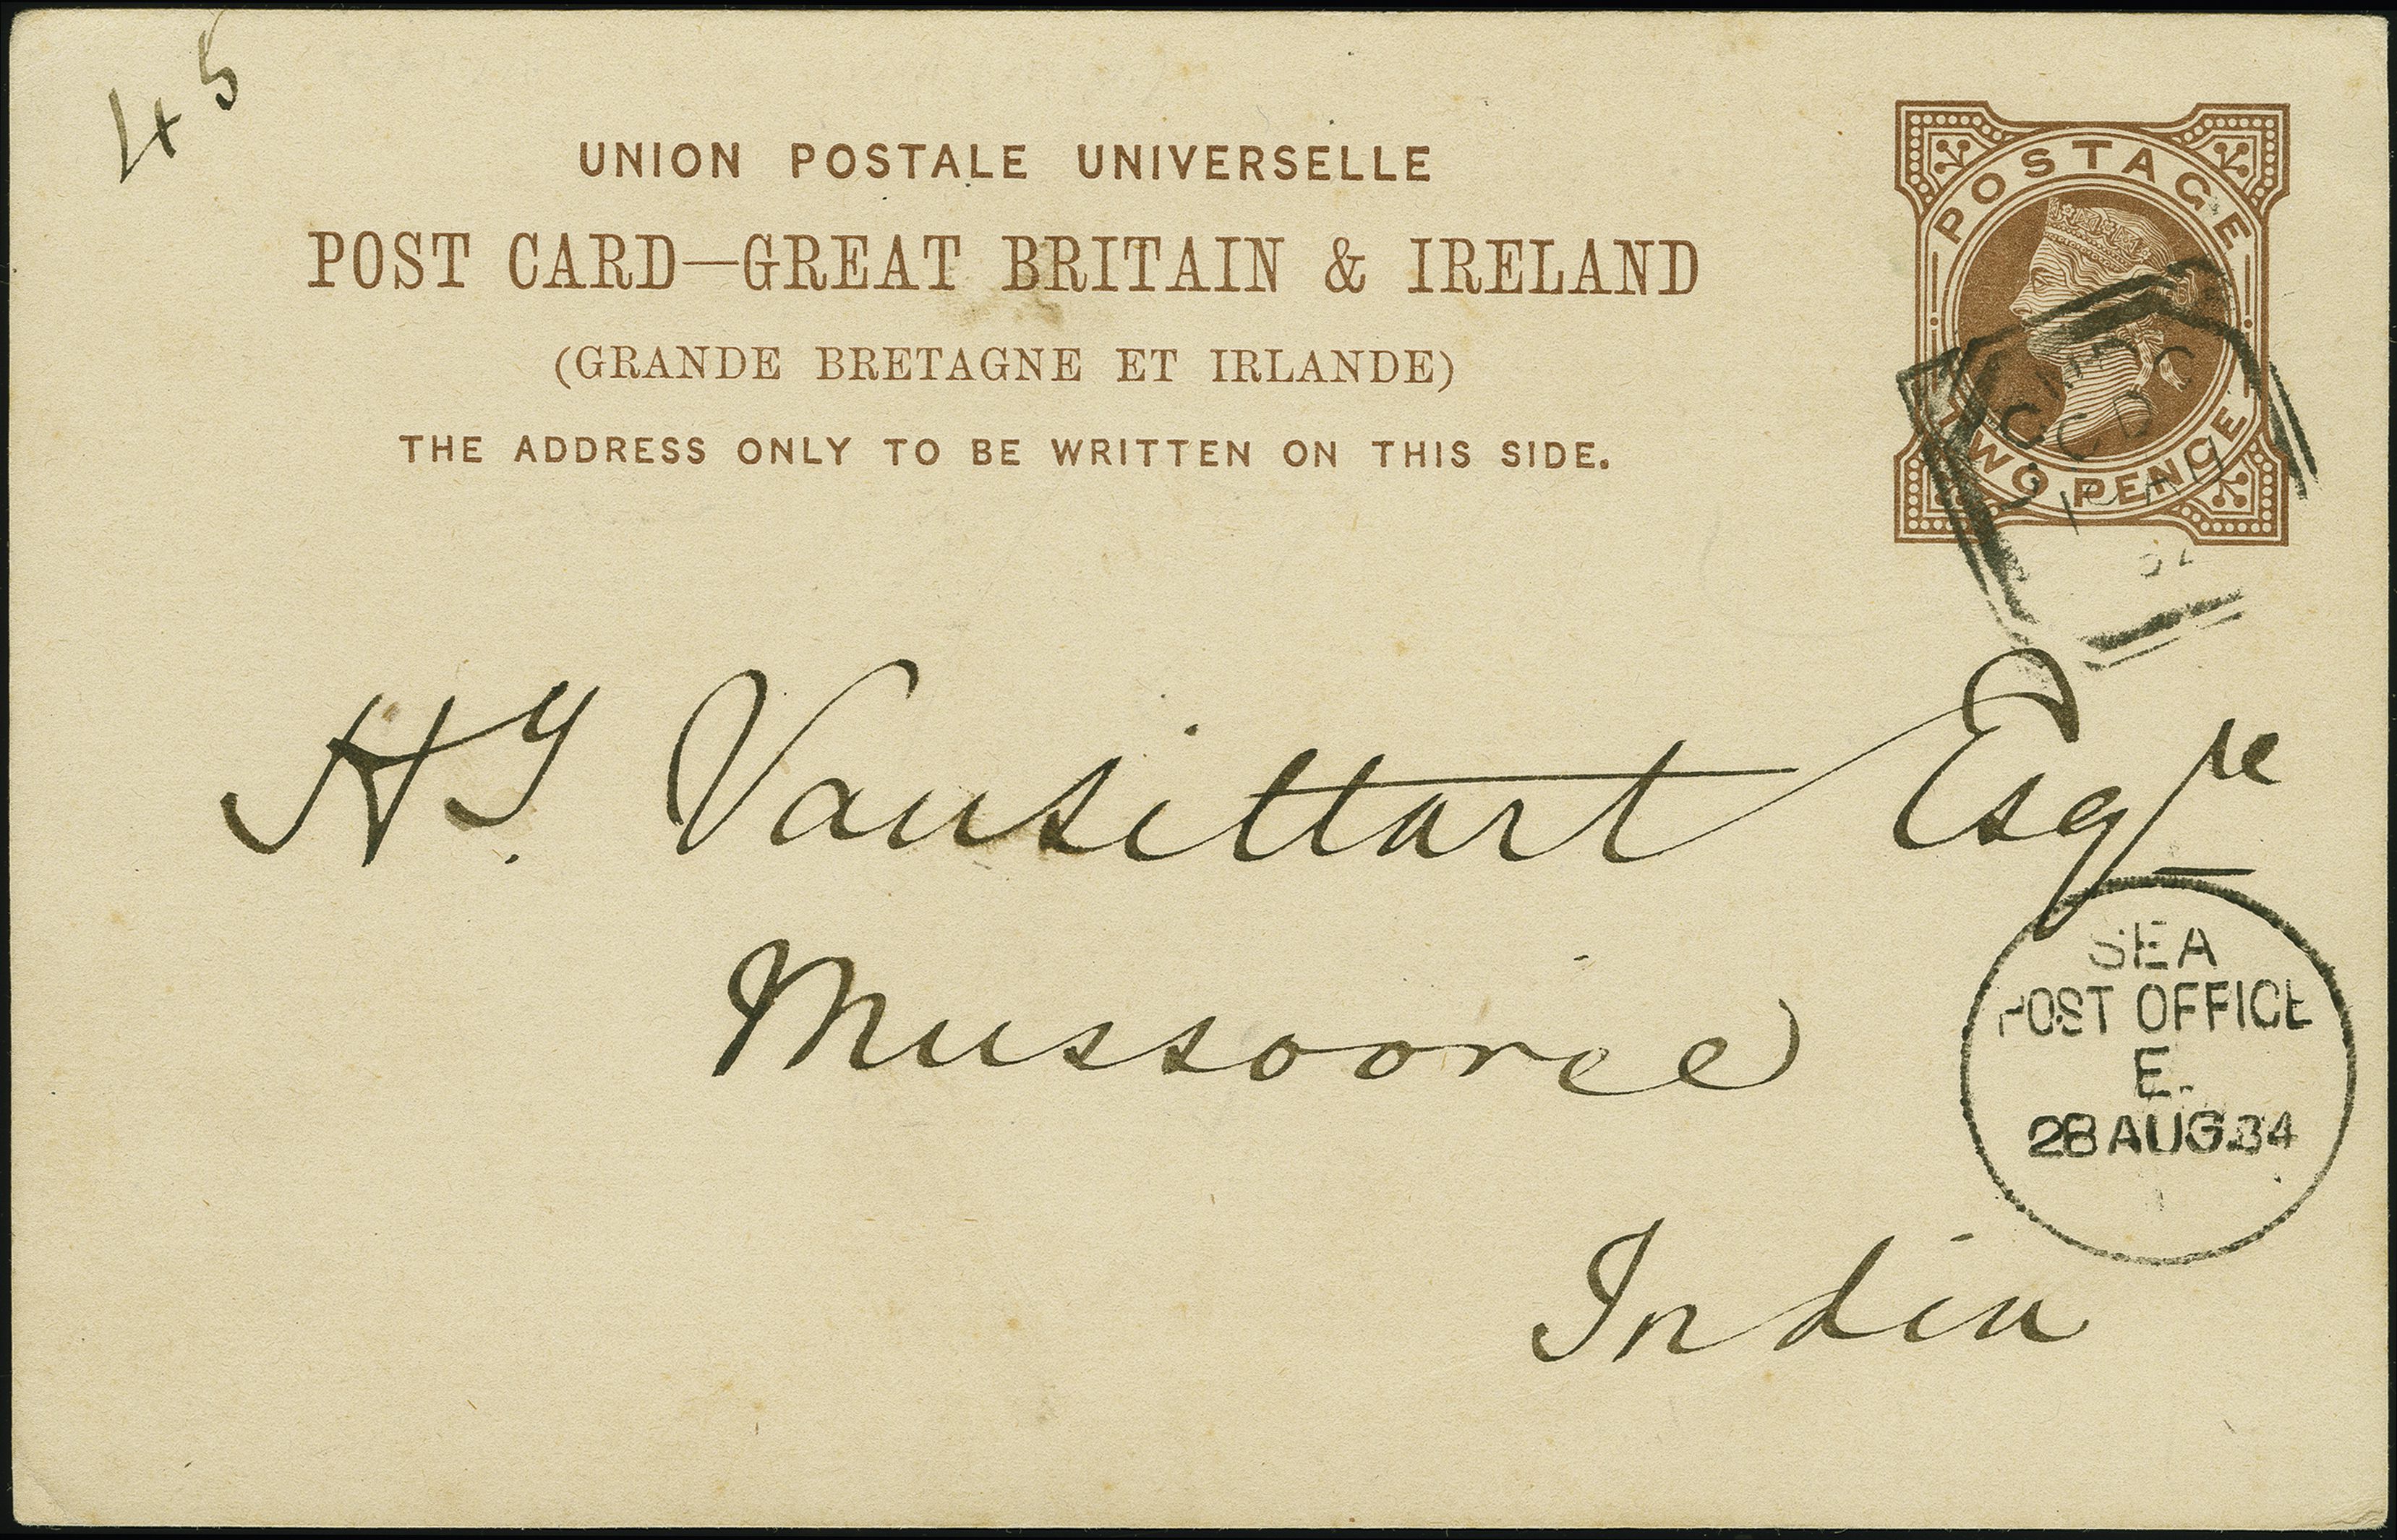 45
UNION POSTALE UNIVERSELLE
POST CARD—GREAT BRITAIN & IRELAND
(GRANDE BRETAGNE ET IRLANDE)
THE ADDRESS ONLY TO BE WRITTEN ON THIS SIDE.
POSTAGE
TWO PENCE
Hy. Vansittart Esqre
Mussooree
India
SEA
POST OFFICE
E.
28 AUG.84